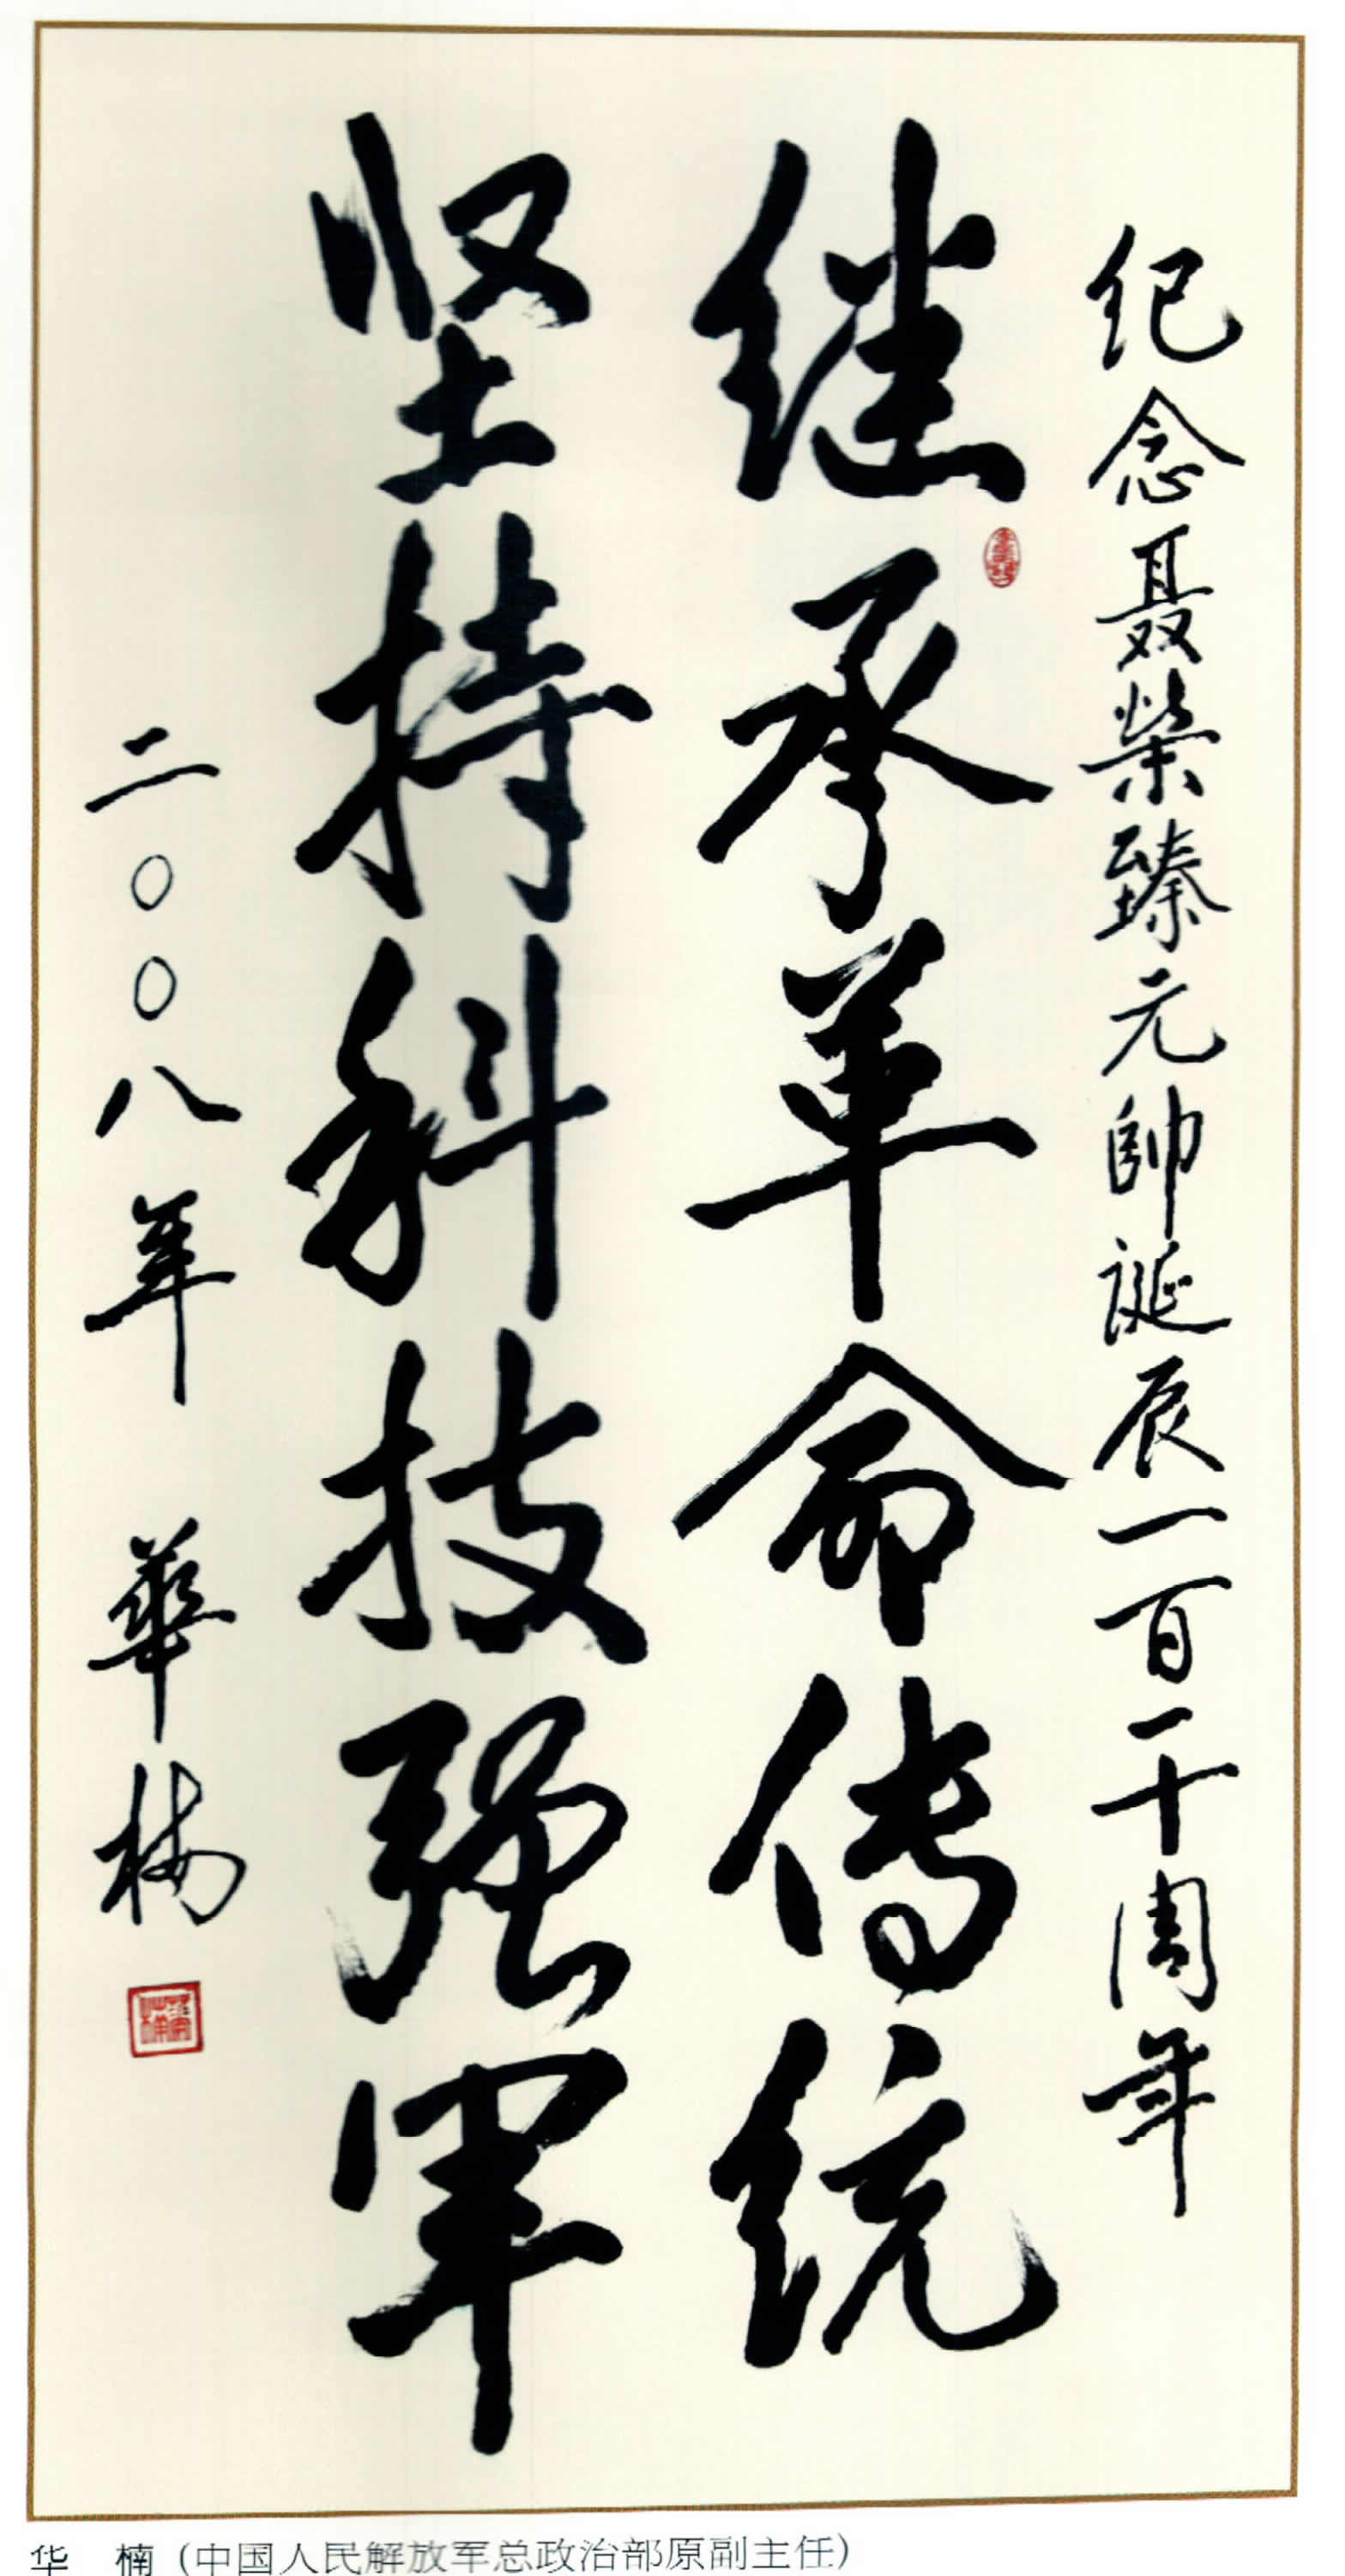 纪念聂榮臻元帥诞辰一百一十周年
继承革命傳统
坚持科技强军
二〇〇八年 華楠
華楠
华 楠（中国人民解放军总政治部原副主任）